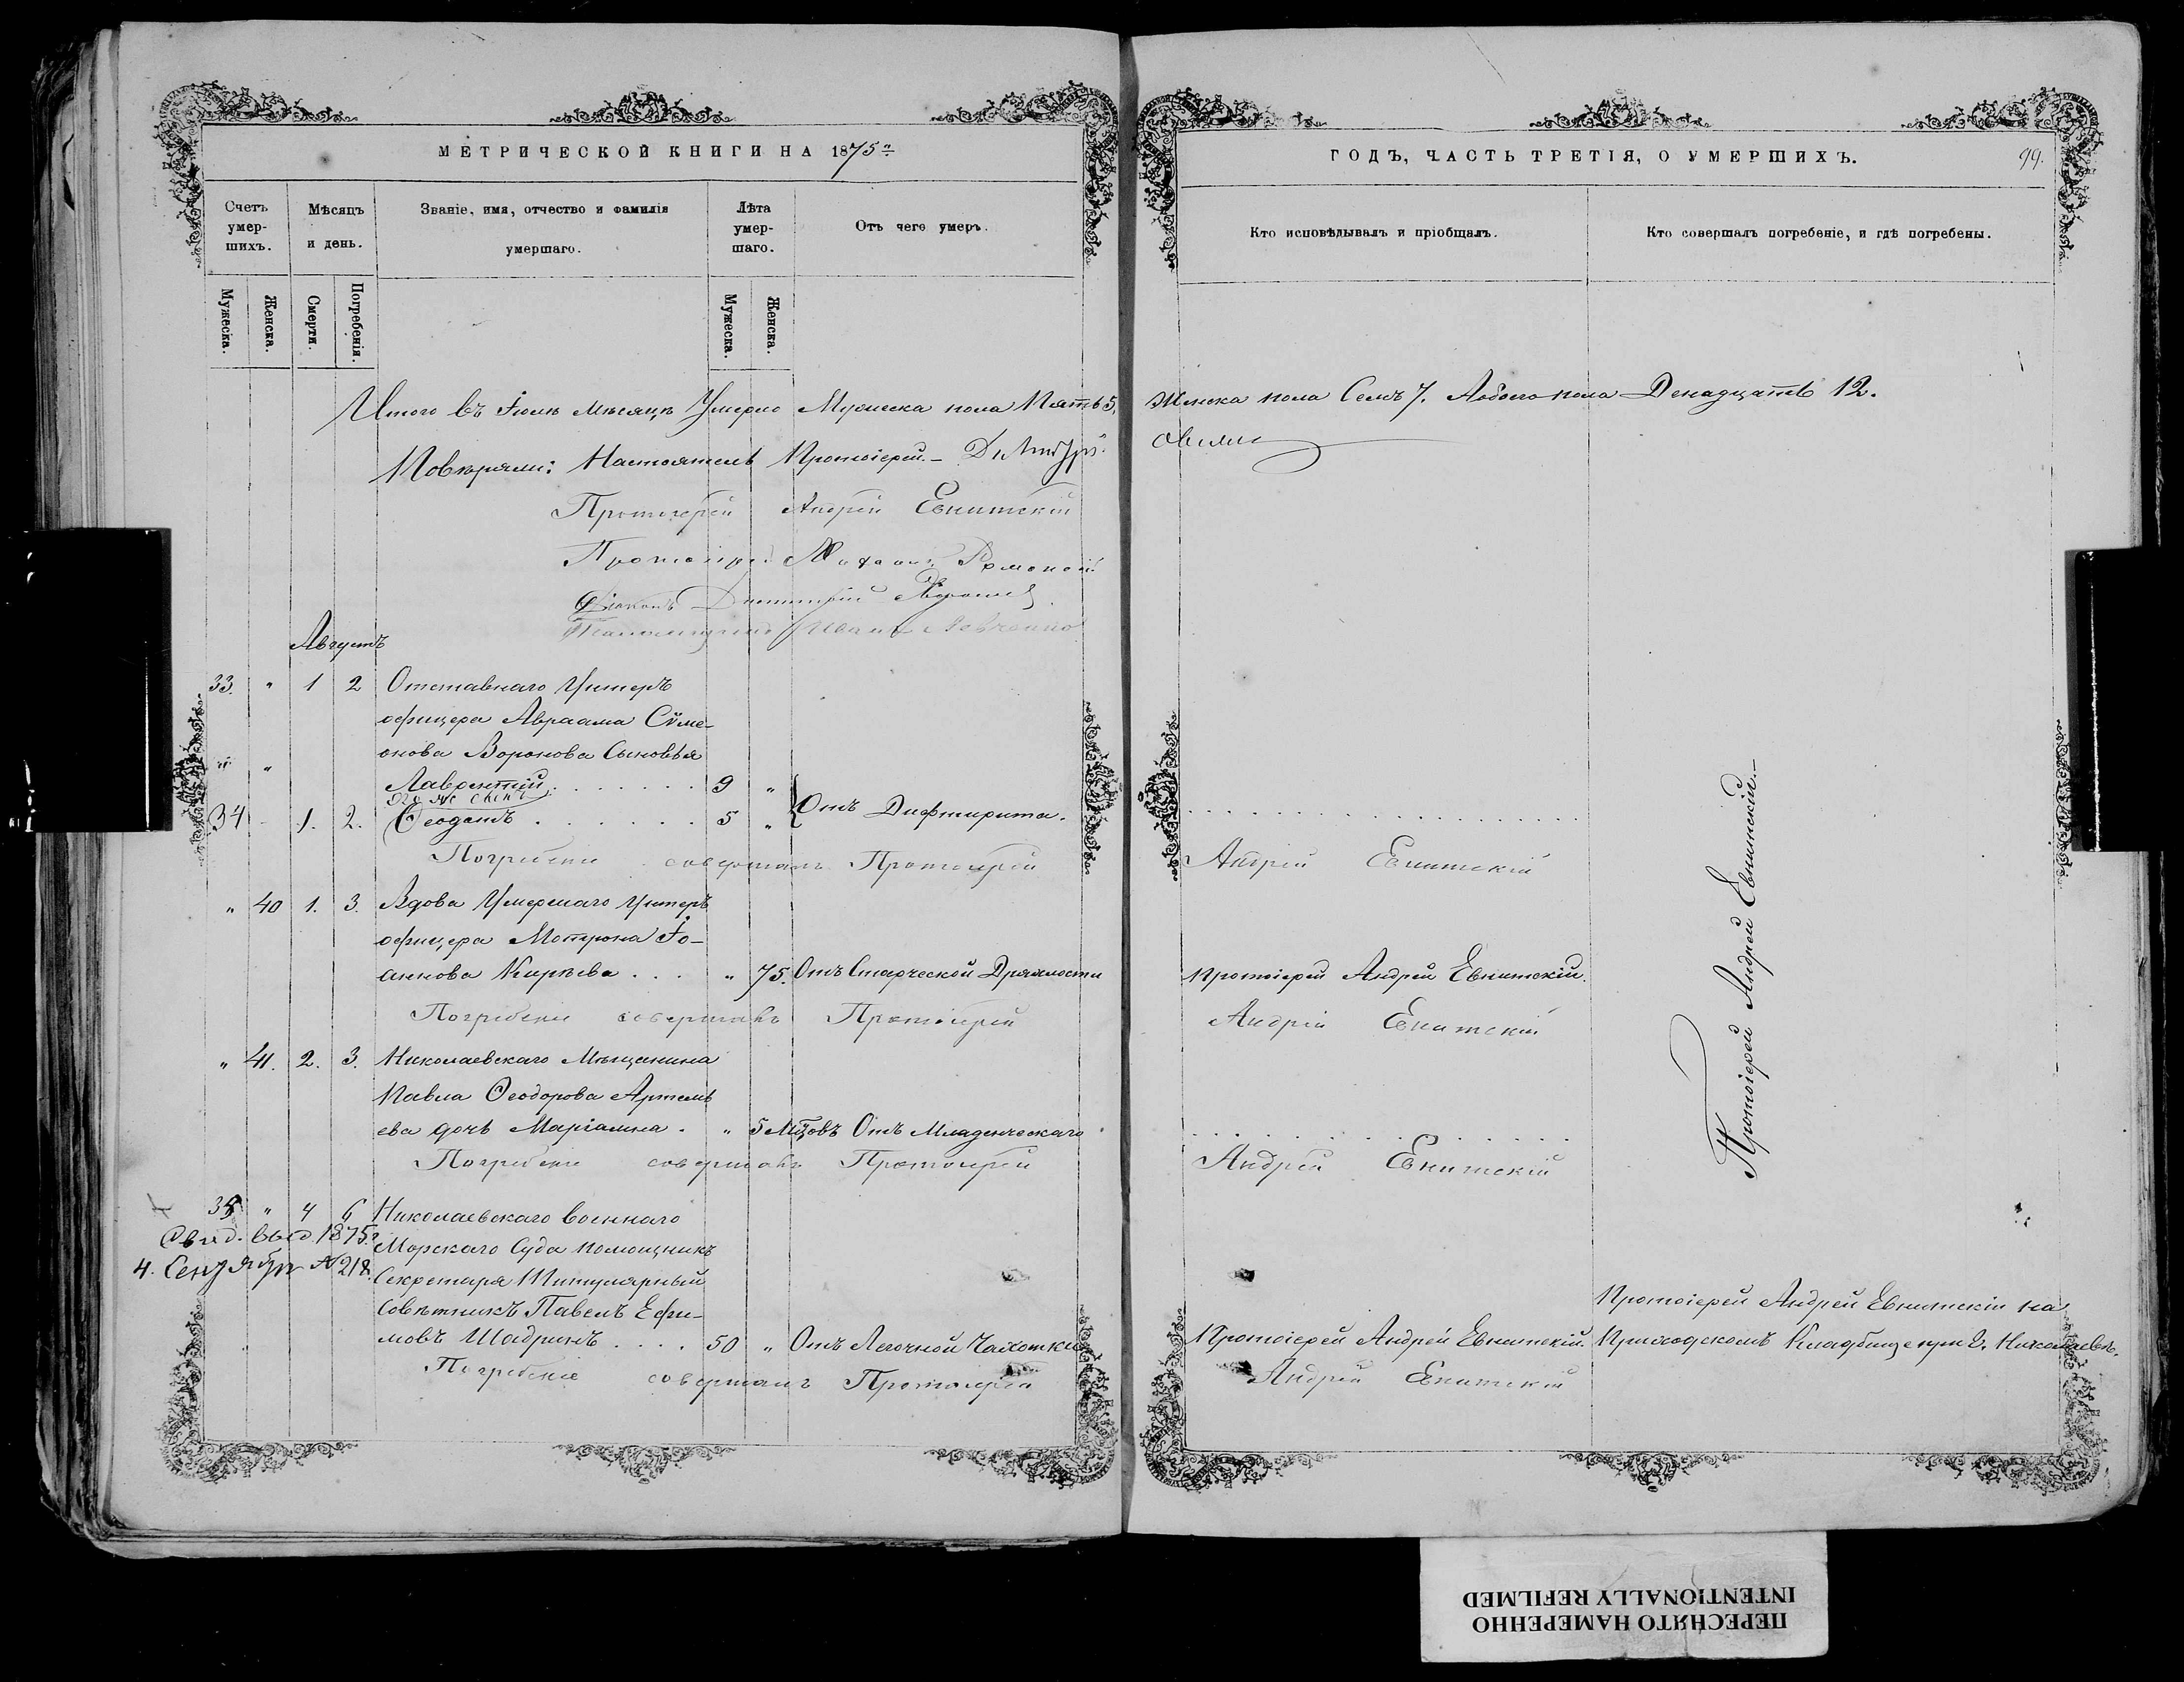 МЕТРИЧЕСКОЙ КНИГИ НА 1875
Счетъ умер-шихъ.
Мѣсяцъ и день.
Званіе, имя, отчество и фамилія умершаго.
Лѣта умер-шаго.
Отъ чего умеръ.
Мужеска.
Женска.
Смерти.
Погребенія.
Мужеска.
Женска.
Итого въ Іюлѣ мѣсяцѣ Умерло Мужеска пола Пять 5,
Повѣряли: Настоятель Протоіерей
Протоіерей Андрей Евнитскій
Протоіерей
Діаконъ Димитрій
Иванъ Левченко
Августъ
33. " 1 2 Отставнаго Унтеръ
офицера Авраама Сѵме-
онова Воронова Сыновья
Лаврентій . . . . . . . 9 "
его же сынъ
34 1. 2. Ѳеодотъ . . . . . . . 5 " Отъ Дифтерита.
Погребеніе совершалъ Протоіерей
" 40 1. 3. Вдова Умершаго Унтеръ
офицера Матрона Іо-
аннова Кирѣева . . . " 75. Отъ Старческой Дряхлости
Погребеніе совершалъ Протоіерей
" 41. 2. 3. Николаевскаго Мѣщанина
Павла Ѳеодорова Артемь
ева дочь Маріамна . " 5 М-цовъ Отъ Младенческаго
Погребеніе совершалъ Протоіерей
35 " 4 6 Николаевскаго военнаго
Свид. выд. 1875 г.
Морскаго Суда помощникъ
4. Сентября № 218.
Секретаря Титулярный
Совѣтникъ Павелъ Ефи-
мовъ Шадринъ . . . . 50 " Отъ Легочной Чахотки
Погребеніе совершалъ Протоіерей
ГОДЪ, ЧАСТЬ ТРЕТІЯ, О УМЕРШИХЪ.
99.
Кто исповѣдывалъ и пріобщалъ.
Кто совершалъ погребеніе, и гдѣ погребены.
Женска пола Семь 7. А обоего пола Двенадцать 12.
Андрей Евнитскій
Протоіерей Андрей Евнитскій.
Андрей Евнитскій
Андрей Евнитскій
Протоіерей Андрей Евнитскій.
Андрей Евнитскій
Протоіерей Андрей Евнитскій.
Протоіерей Андрей Евнитскій на
Приходскомъ Кладбище при г. Николаевѣ.
ПЕРЕСНЯТО НАМЕРЕННО
INTENTIONALLY REFILMED